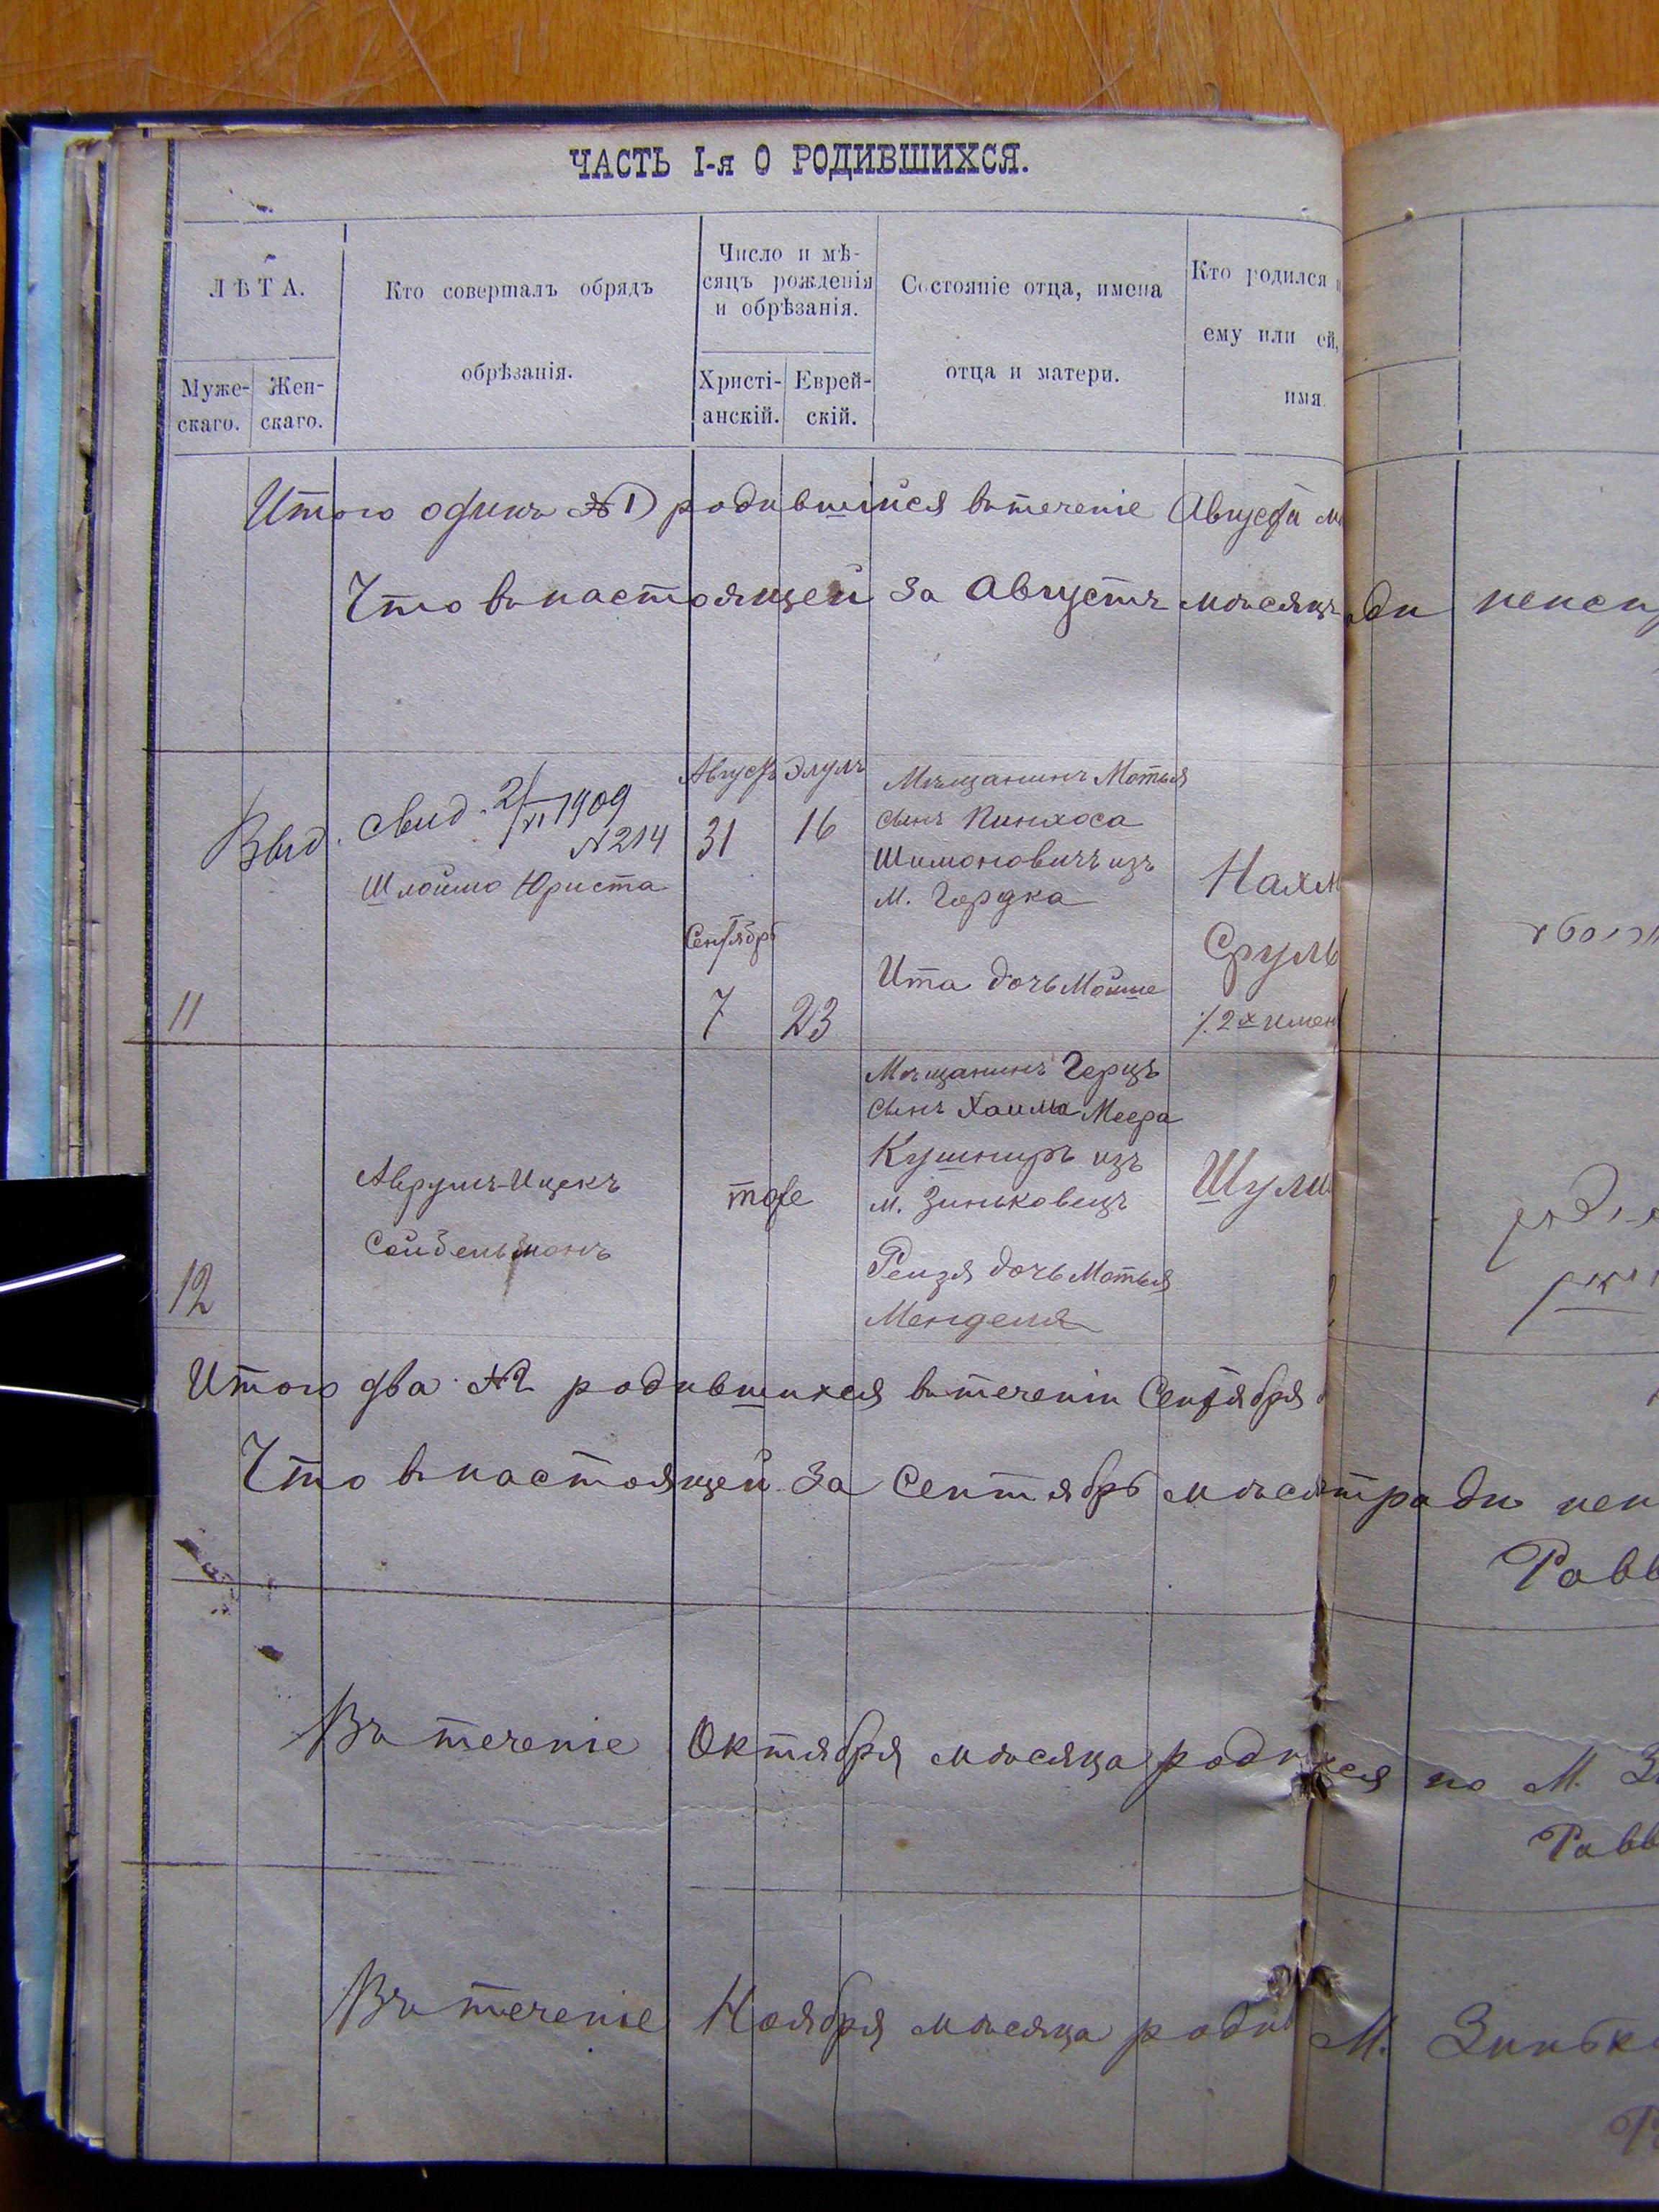 ЧАСТЬ I-я О РОДИВШИХСЯ.
ЛѢТА.
Муже-
скаго.
Жен-
скаго.
Кто совершалъ обрядъ
обрѣзанія.
Число и мѣ-
сяцъ рожденія
и обрѣзанія.
Христі-
анскій.
Еврей-
скій.
Состояніе отца, имена
отца и матери.
Кто родился
ему или ей,
имя.
Итого одинъ №1) родившійся въ теченіе Августа
Что въ настоящей за Августъ мѣсяцъ
Выд. Свид. 2/VI 1909
№ 214
Шлоймо Юриста
11
Августъ Элулъ
31 16
Сентябрь
7 23
Мѣщанинъ Мотья
сынъ Пинхоса
Шимоновичъ изъ
м. Городка
Ита дочь Мойше
Нахм
Сруль
2х имен
12
Аврумъ-Ицекъ
Сойдельманъ
тоже
Мѣщанинъ Герцъ
сынъ Хаима Меера
Кушниръ изъ
м. Зиньковецъ
Рейзя дочь Мотья
Менделя
Шули
Итого два №2 родившихся въ теченіи Сентября
Что въ настоящей за Сентябрь мѣся тради
Равв
Въ теченіе Октября мѣсяца роди хся по М.
Равв
Въ теченіе Ноября мѣсяца роди М. Зиньк